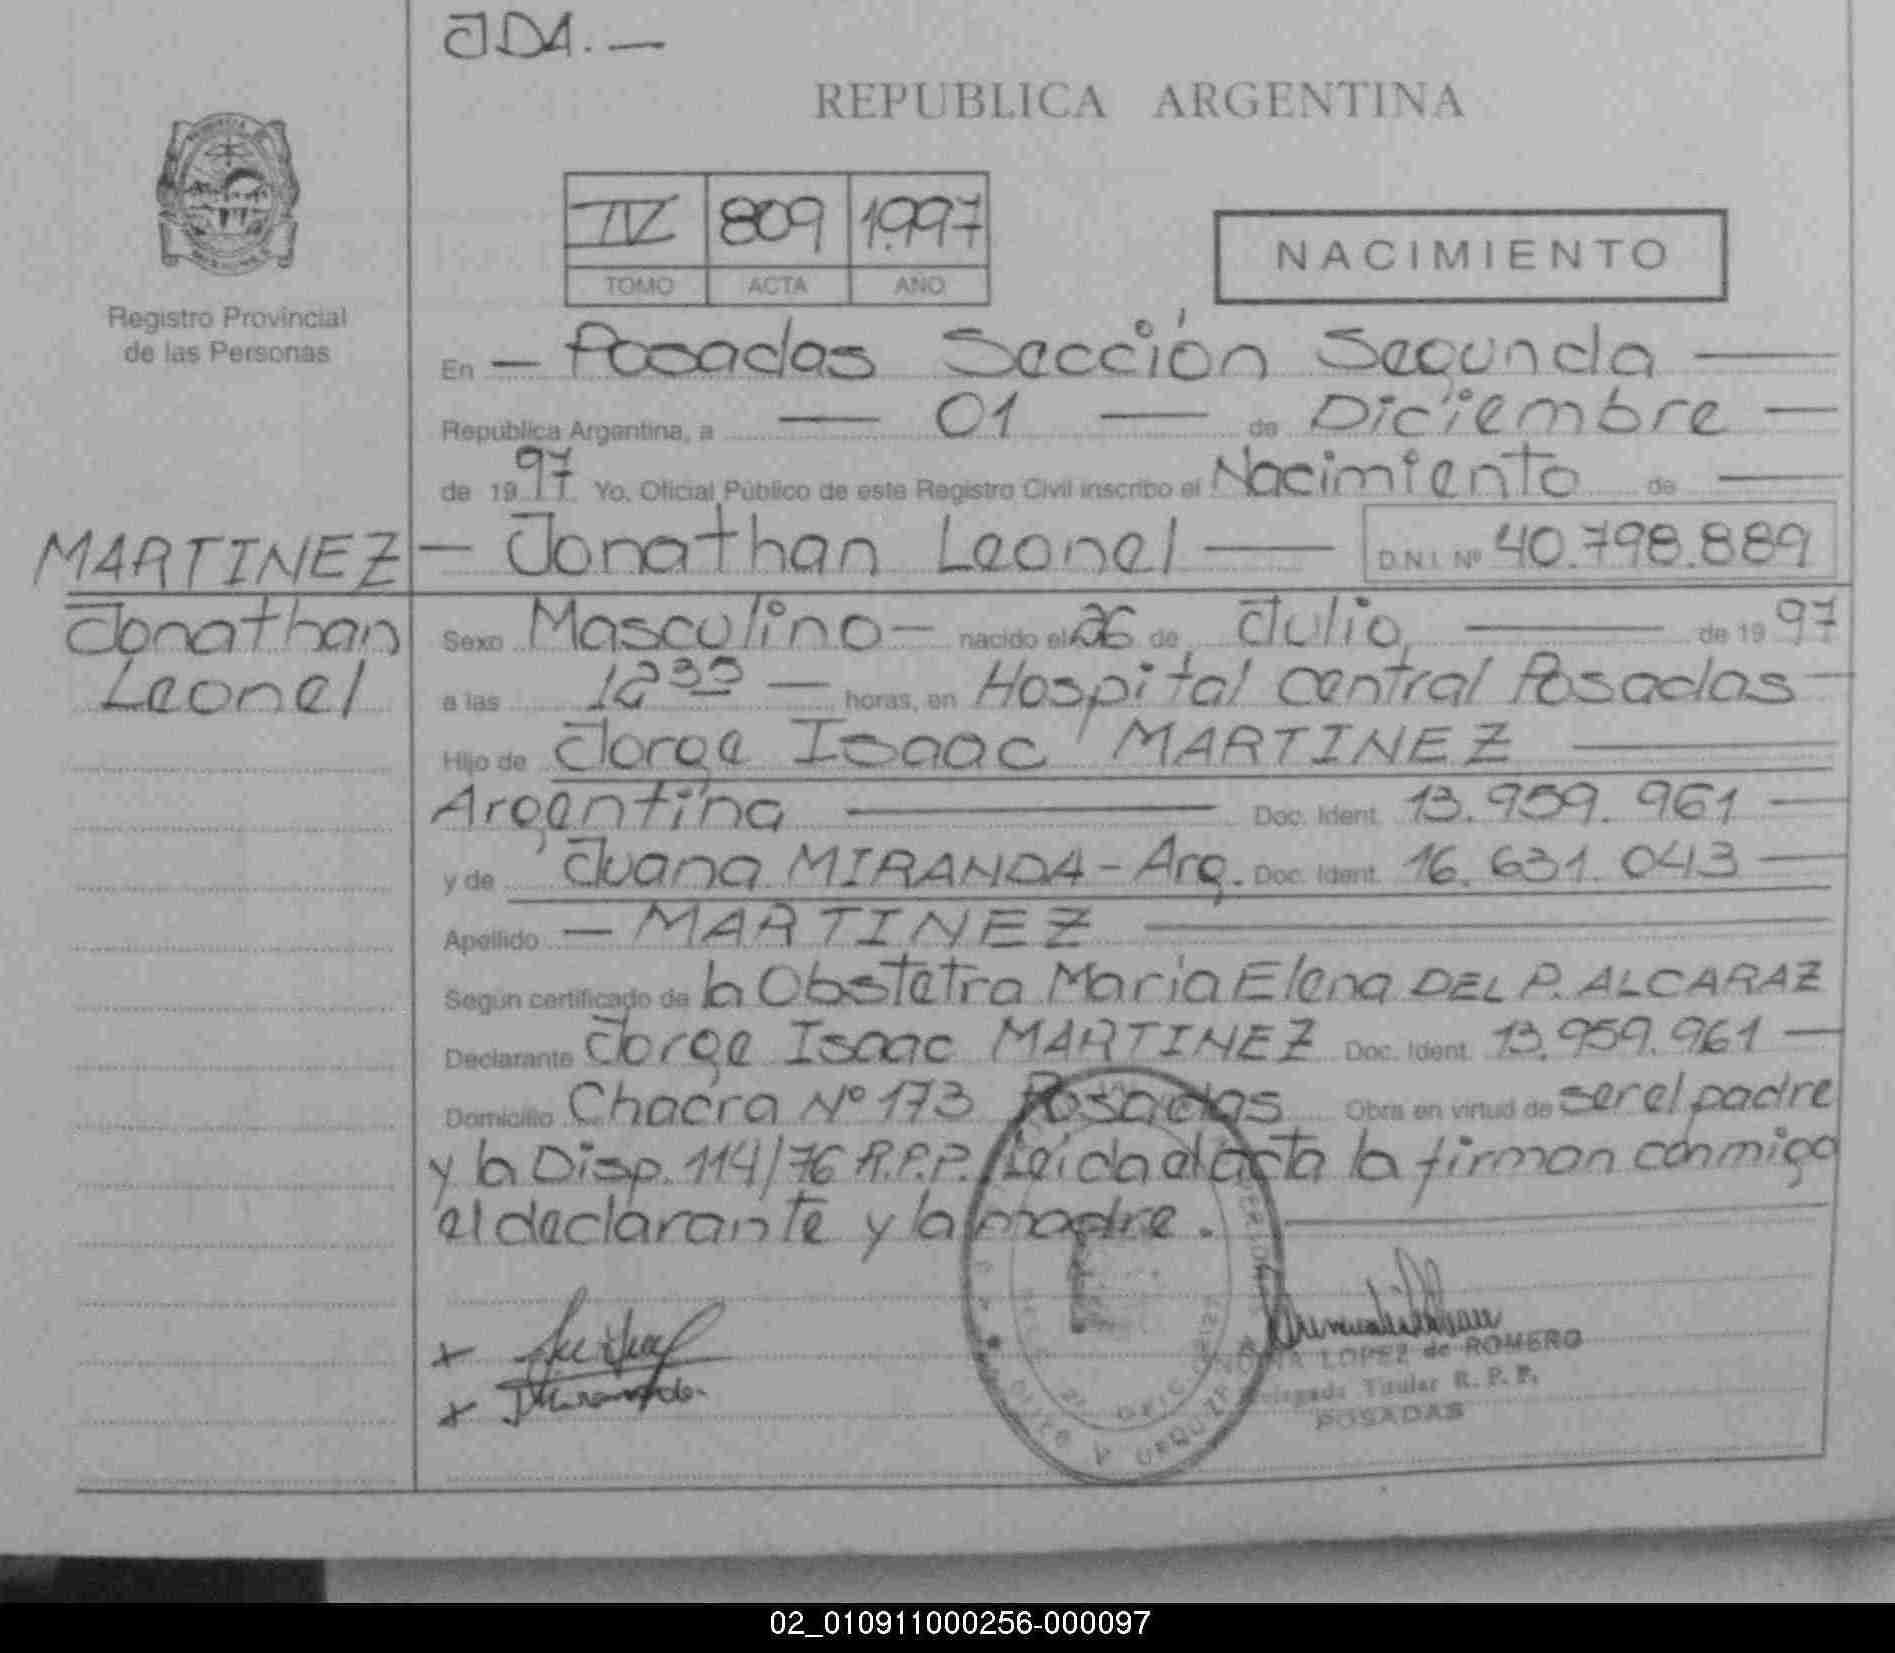 JDA.—
REPUBLICA ARGENTINA
IV 809 1.997
TOMO ACTA AÑO
NACIMIENTO
Registro Provincial
de las Personas
En — Posadas Sección Segunda —
República Argentina, a — 01 — de Diciembre —
de 1997 Yo, Oficial Público de este Registro Civil inscribo el Nacimiento de —
MARTINEZ — Jonathan Leonel — D.N.I. Nº 40.798.889
Jonathan
Leonel
Sexo Masculino — nacido el 26 de Julio, — de 1997
a las 12 — horas, en Hospital Central Posadas —
Hijo de Jorge Isaac MARTINEZ —
Argentina — Doc. Ident. 13.959.961 —
y de Juana MIRANDA - Arg. Doc. Ident. 16.631.043 —
Apellido — MARTINEZ —
Según certificado de la Obstetra Maria Elena DEL P. ALCARAZ
Declarante Jorge Isaac MARTINEZ Doc. Ident. 13.959.961 —
Domicilio Chacra Nº 173 Posadas Obra en virtud de ser el padre
y la Disp. 114/76 R.P.P. Leída el acta la firman conmigo
el declarante y la madre. —
x
x JMiranda.
LOPEZ de ROMERO
Delegada Titular R. P. P.
POSADAS
02_010911000256-000097